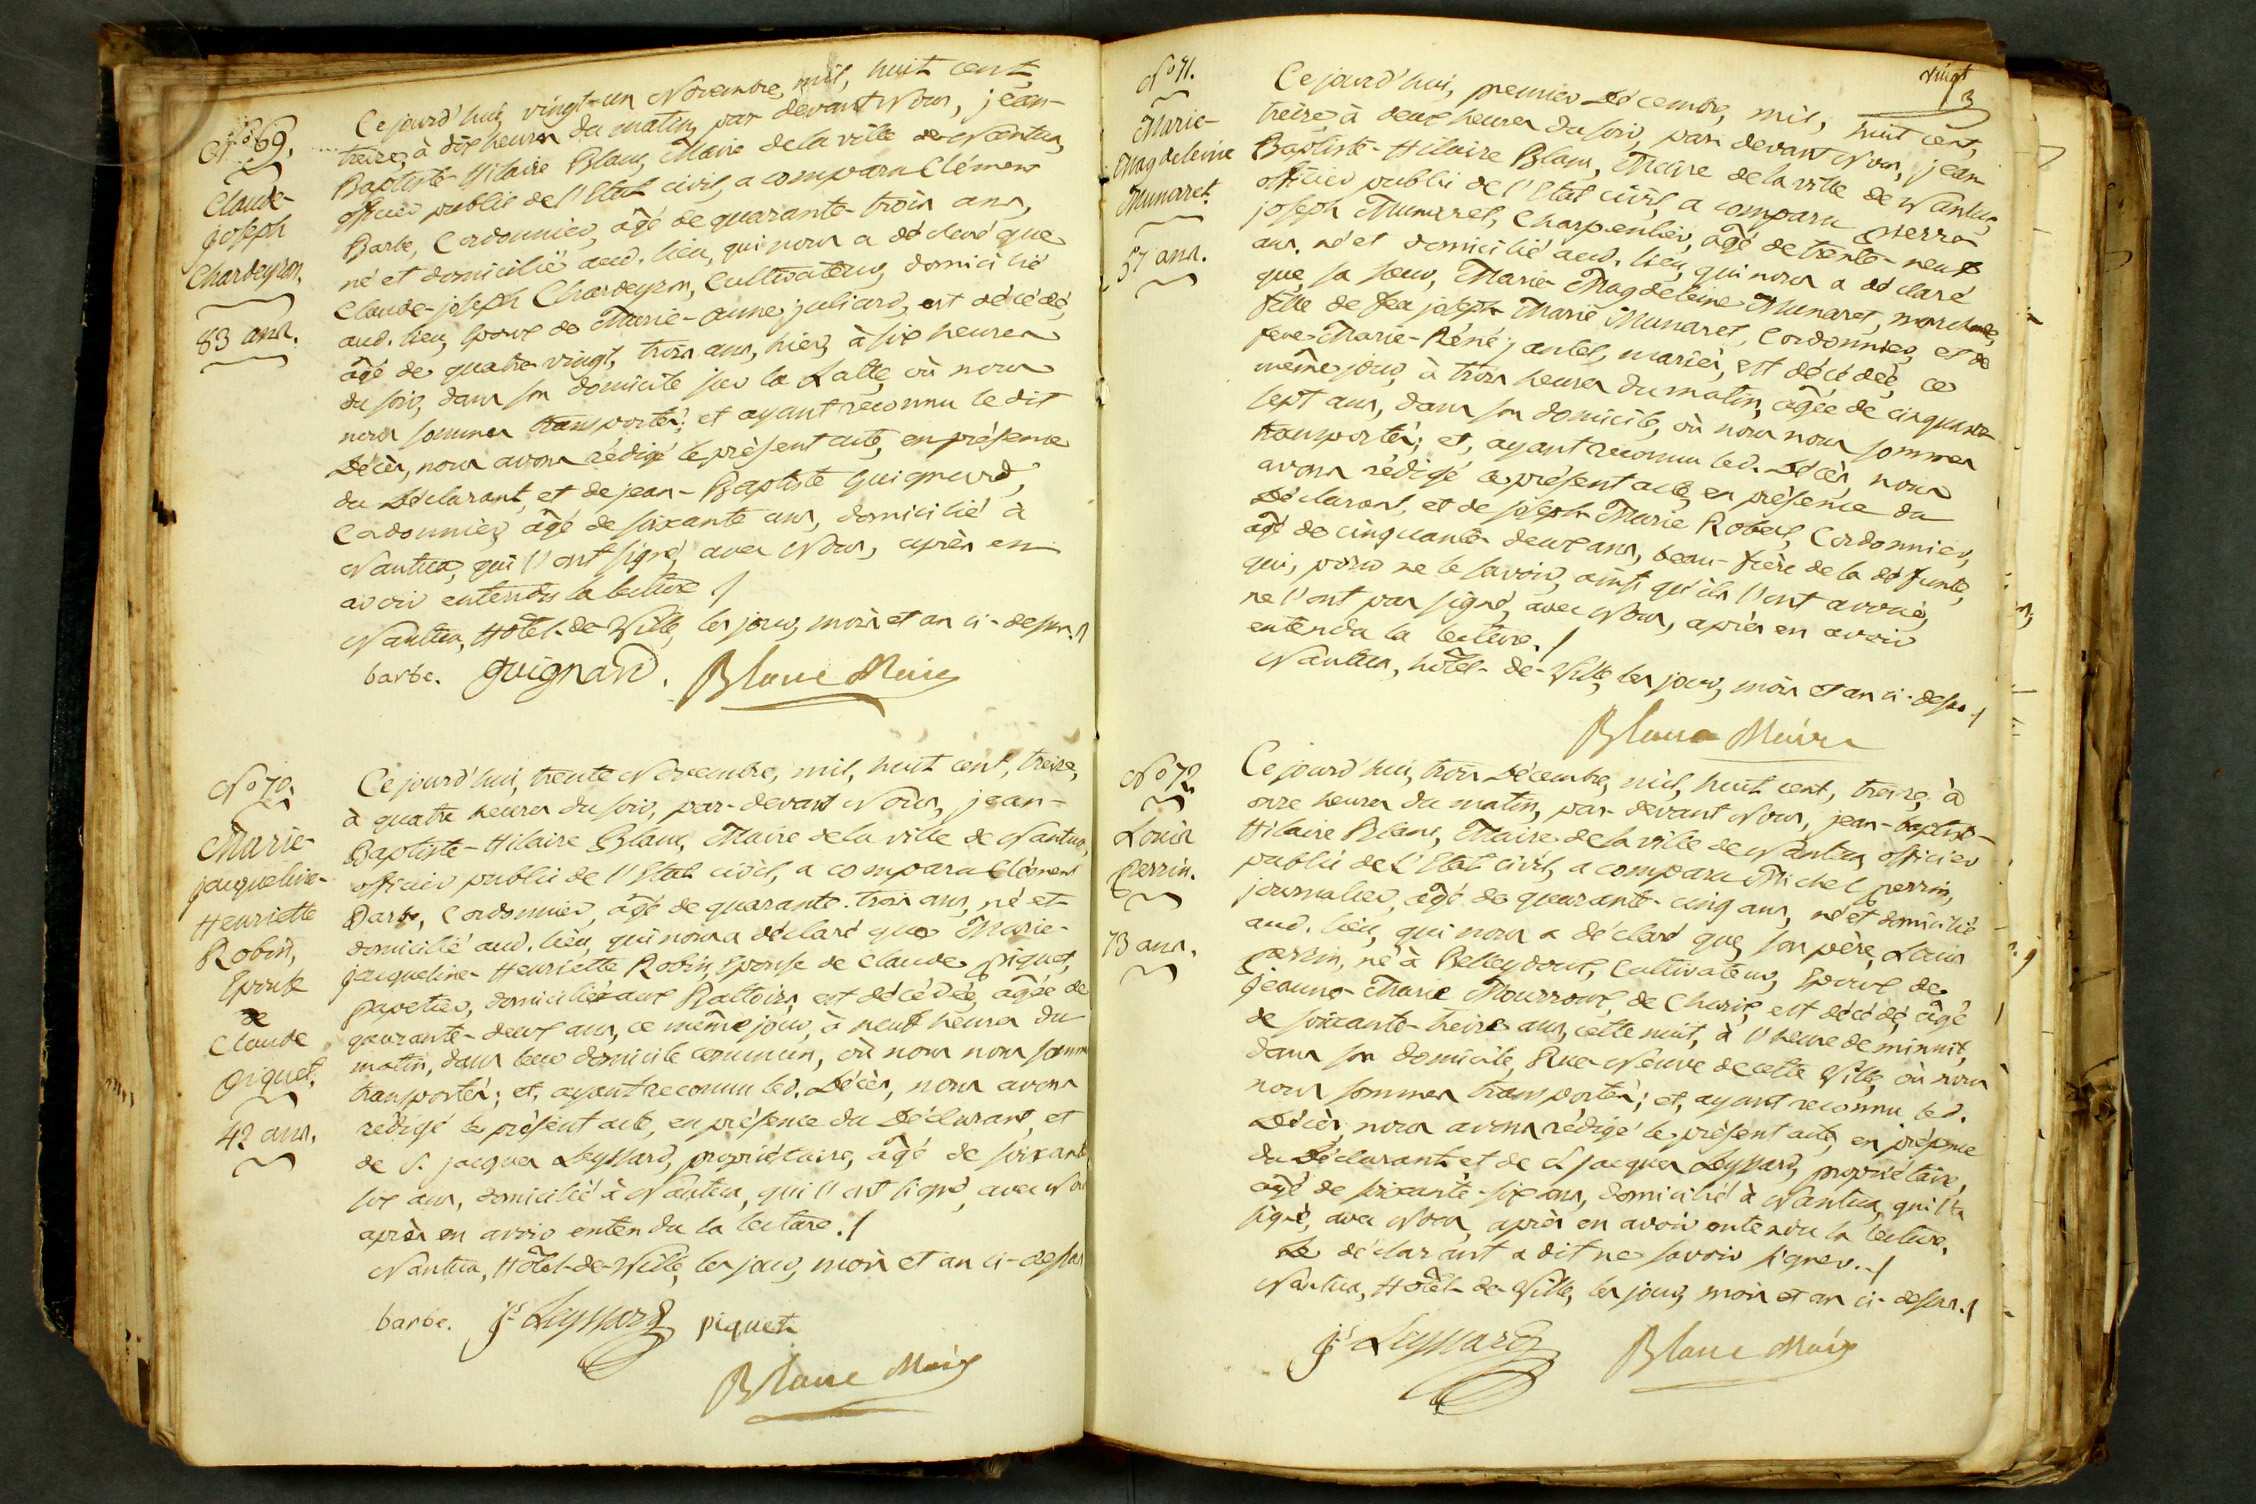 N.º 69.
Claude-
joseph
Chardeyron.
83 ans.
Ce jourd'hui, vingt-un Novembre, mil, huit cent,
treize, à dix heures du matin, par devant Nous, jean-
Baptiste-Hilaire Blanc, Maire de la ville de Nantua,
officier public de l'Etat civil, a comparu Clément
Barbe, Cordonnier, âgé de quarante-trois ans,
né et domicilié aud. lieu, qui nous a déclaré que
Claude-joseph Chardeyron, Cultivateur, domicilié
aud. lieu, époux de Marie-anne juliard, est décédé,
âgé de quatre-vingt, trois ans, hier, à six heures
du soir, dans son domicile sur la Latte, où nous
nous sommes transportés; et ayant reconnu le dit
Décès, nous avons rédigé le présent acte, en présence
du Déclarant, et de jean-Baptiste Guignard,
Cordonnier, âgé de soixante ans, domicilié à
Nantua, qui l'ont signé, avec Nous, après en
avoir entendu la lecture./
Nantua, Hôtel-de-Ville, les jour, mois et an ci-dessus./
barbe. guignard. Blanc Maire
N.º 70.
Marie-
jacqueline-
Henriette
Robin,
Epouse
de
Claude
Piquet.
42 ans.
Ce jourd'hui, trente Novembre, mil, huit cent, treize,
à quatre heures du soir, par-devant Nous, jean-
Baptiste-Hilaire Blanc, Maire de la ville de Nantua,
officier public de l'Etat civil, a comparu Clément
Barbe, Cordonnier, âgé de quarante-trois ans, né et
domicilié aud. lieu, qui nous a déclaré que Marie-
jacqueline-Henriette Robin, Epouse de Claude Piquet,
papetier, domiciliée aux Battoirs, est décédée, âgée de
quarante-deux ans, ce même jour, à neuf heures du
matin, dans leur domicile commun, où nous nous somme
transportés; et, ayant reconnu led. Décès, nous avons
rédigé le présent acte, en présence du Déclarant, et
de S. jacques Leyssard, propriétaire, âgé de soixante
six ans, domicilié à Nantua, qui l'ont signé, avec Nous
après en avoir entendu la lecture./
Nantua, Hôtel-de-Ville, les jour, mois et an ci-dessus
barbe. Js Leyssard piquet
Blanc Maire
vingt
3
N.º 71.
Marie-
Magdeleine
Munaret.
57 ans.
Ce jourd'hui, premier Décembre, mil, huit cent,
treize, à deux heures du soir, par devant Nous, jean
Baptiste-Hilaire Blanc, Maire de la ville de Nantua,
officier public de l'Etat civil, a comparu Pierre-
joseph Munaret, Charpentier, âgé de trente-neuf
ans, né et domicilié aud. lieu, qui nous a déclaré
que, sa sœur, Marie-Magdeleine Munaret, marchande,
fille de feu joseph-Marie Munaret, Cordonnier, et de
feue Marie-Réné jantet, mariés, est décédée, ce
même jour, à trois heures du matin, âgée de cinquante
sept ans, dans son domicile, où nous nous sommes
transportés; et, ayant reconnu led. Décès, nous
avons rédigé le présent acte, en présence du
Déclarant, et de joseph-Marie Robert, Cordonnier,
âgé de cinquante-deux ans, beau-frère de la défunte,
qui, pour ne le savoir, ainsi qu'ils l'ont avoué,
ne l'ont pas signé, avec Nous, après en avoir
entendu la lecture./
Nantua, hôtel-de-Ville, les jour, mois et an ci-dessus./
Blanc Maire
N.º 72.
Louis
Perrin.
73 ans.
Ce jourd'hui, trois Décembre, mil, huit cent, treize, à
onze heures du matin, par-devant Nous, jean-baptiste-
Hilaire Blanc, Maire de la ville de Nantua, officier
public de l'Etat civil, a comparu Michel perrin,
journalier, âgé de quarante-cinq ans, né et domicilié
aud. lieu, qui nous a déclaré que, son père, Louis
perrin, né à Belleydoux, Cultivateur, Epoux de
jeanne-Marie Mourroux, de Charix, est décédé, âgé
de soixante-treize ans, cette nuit, à l'heure de minuit,
dans son domicile, Rue Neuve de cette Ville, où nous
nous sommes transportés; et, ayant reconnu led.
Décès, nous avons rédigé le présent acte, en présence
du Déclarant, et de S. jacques Leyssard, propriétaire,
âgé de soixante-six ans, domicilié à Nantua, qui l'a
signé, avec Nous, après en avoir entendu la lecture.
Le déclarant a dit ne savoir signer./
Nantua, Hôtel-de-Ville, les jour, mois et an ci-dessus./
Js Leyssard Blanc Maire